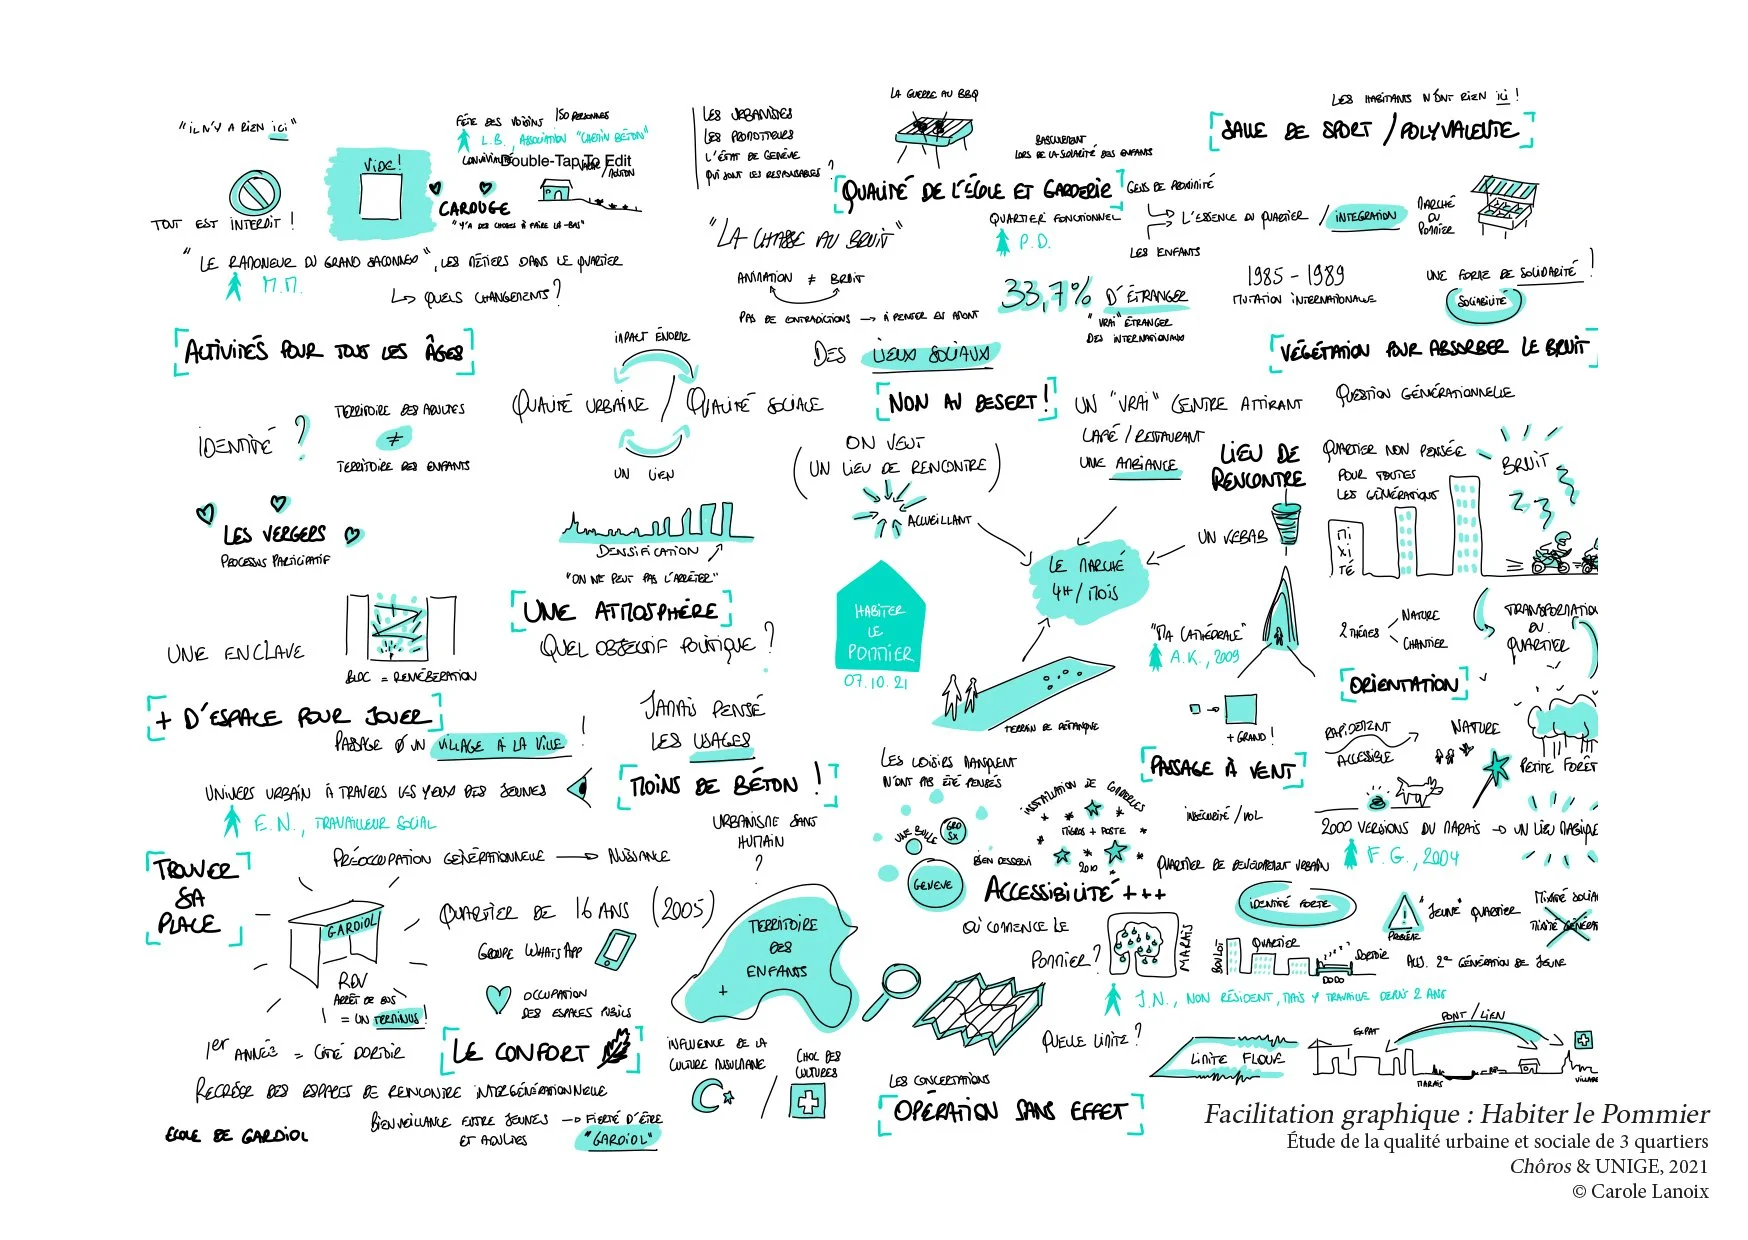 "IL N'Y A RIEN ICI"
TOUT EST INTERDIT !
VIDE !
FÊTE DES VOISINS 150 PERSONNES
L.B., ASSOCIATION "CARTIN BÉTON"
Double-Tap To Edit
CAROUGE
"Y'A DES CHOSES À FAIRE LÀ-BAS"
"LE RAMONEUR DU GRAND SACONNEX", LES MÉTIERS DANS LE QUARTIER
M.M.
↳ QUELS CHANGEMENTS ?
LES URBANISTES
LES PROMOTTEURS
L'ÉTAT DE GENÈVE
QUI SONT LES RESPONSABLES ?
LA GUERRE AU BBQ
LORS DE LA SCOLARITÉ DES ENFANTS
QUALITÉ DE L'ÉCOLE ET GARDERIE
LES HABITANTS N'ONT RIEN ICI !
SALLE DE SPORT / POLYVALENTE
"LA CHASSE AU BRUIT"
ANIMATION ≠ BRUIT
PAS DE CONTRADICTIONS → À PENSER EN AMONT
QUARTIER FONCTIONNEL
P.D.
GENS DE PROXIMITÉ
L'ESSENCE DU QUARTIER / INTÉGRATION
LES ENFANTS
MARCHÉ
DU
POMMIER
33,7% D'ÉTRANGER
"VRAI" ÉTRANGER
DES INTERNATIONAUX
1985 - 1989
MUTATION INTERNATIONALE
UNE FORME DE SOLIDARITÉ !
SOCIABILITÉ
ACTIVITÉS POUR TOUS LES ÂGES
IMPACT ÉNORME
QUALITÉ URBAINE / QUALITÉ SOCIALE
UN LIEN
DES LIEUX SOCIAUX
NON AU DESERT !
VÉGÉTATION POUR ABSORBER LE BRUIT
IDENTITÉ ?
TERRITOIRE DES ADULTES
≠
TERRITOIRE DES ENFANTS
ON VEUT
(UN LIEU DE RENCONTRE)
ACCUEILLANT
UN "VRAI" CENTRE ATTIRANT
CAFÉ / RESTAURANT
UNE AMBIANCE
LIEU DE
RENCONTRE
UN KEBAB
QUESTION GÉNÉRATIONNELLE
QUARTIER NON PENSÉE
POUR TOUTES
LES GÉNÉRATIONS
MIXITÉ
BRUIT
LES VERGERS
PROCESSUS PARTICIPATIF
DENSIFICATION
"ON NE PEUT PAS L'ARRÊTER"
UNE ATMOSPHÈRE
QUEL OBJECTIF POLITIQUE ?
HABITER
LE
POMMIER
07.10.21
LE MARCHÉ
4H / MOIS
"MA CATHÉDRALE"
A.K., 2009
2 THÈMES
NATURE
CHANTIER
DU
QUARTIER
UNE ENCLAVE
BLOC = REVÉRBÉRATION
TERRAIN DE PÉTANQUE
+ GRAND !
ORIENTATION
+ D'ESPACE POUR JOUER
PASSAGE D'UN VILLAGE À LA VILLE !
JAMAIS PENSÉ
LES USAGES
MOINS DE BÉTON !
URBANISME SANS
HUMAIN
?
LES LOISIRS MANQUENT
N'ONT PAS ÉTÉ PENSÉS
PASSAGE À VENT
INSÉCURITÉ / VOL
RAPIDEMENT
ACCESSIBLE
NATURE
PETITE FORÊT
2000 VERSIONS DU MARAIS → UN LIEU MAGIQUE
F.G., 2004
UNIVERS URBAIN À TRAVERS LES YEUX DES JEUNES
E.N., TRAVAILLEUR SOCIAL
PRÉOCCUPATION GÉNÉRATIONNELLE → NUISANCE
UNE BULLE
GENÈVE
INSTALLATION DE GAMELLES
MIGROS + POSTE
2010
BIEN DESSERVI
ACCESSIBILITÉ +++
QUARTIER DE DEVELOPPEMENT URBAIN
IDENTITÉ FORTE
PROBLÈME
"JEUNE" QUARTIER
TROUVER
SA
PLACE
GARDIOL
RDV
ARRÊT DE BUS
= UN TERMINUS !
QUARTIER DE 16 ANS (2005)
GROUPE WHATSAPP
OCCUPATION
DES ESPACES PUBLICS
TERRITOIRE
DES
ENFANTS
OÙ COMMENCE LE
POMMIER ?
MARAIS
BOULOT
QUARTIER
DORTOIR
DODO
J.N., NON RÉSIDENT, MAIS Y TRAVAILLE DEPUIS 2 ANS
1er ANNÉE = CITÉ DORTOIR
LE CONFORT
INFLUENCE DE LA
CULTURE MUSULMANE
CHOC DES
CULTURES
QUELLE LIMITE ?
LIMITE FLOUE
EXPAT
PONT / LIEN
MARAIS
VILLAGE
RECRÉER DES ESPACES DE RENCONTRE INTERGÉNÉRATIONNELLE
BIENVEILLANCE ENTRE JEUNES → FIERTÉ D'ÊTRE
ET ADULTES "GARDIOL"
ECOLE DE GARDIOL
LES CONCERTATIONS
OPÉRATION SANS EFFET
Facilitation graphique : Habiter le Pommier
Étude de la qualité urbaine et sociale de 3 quartiers
Chôros & UNIGE, 2021
© Carole Lanoix